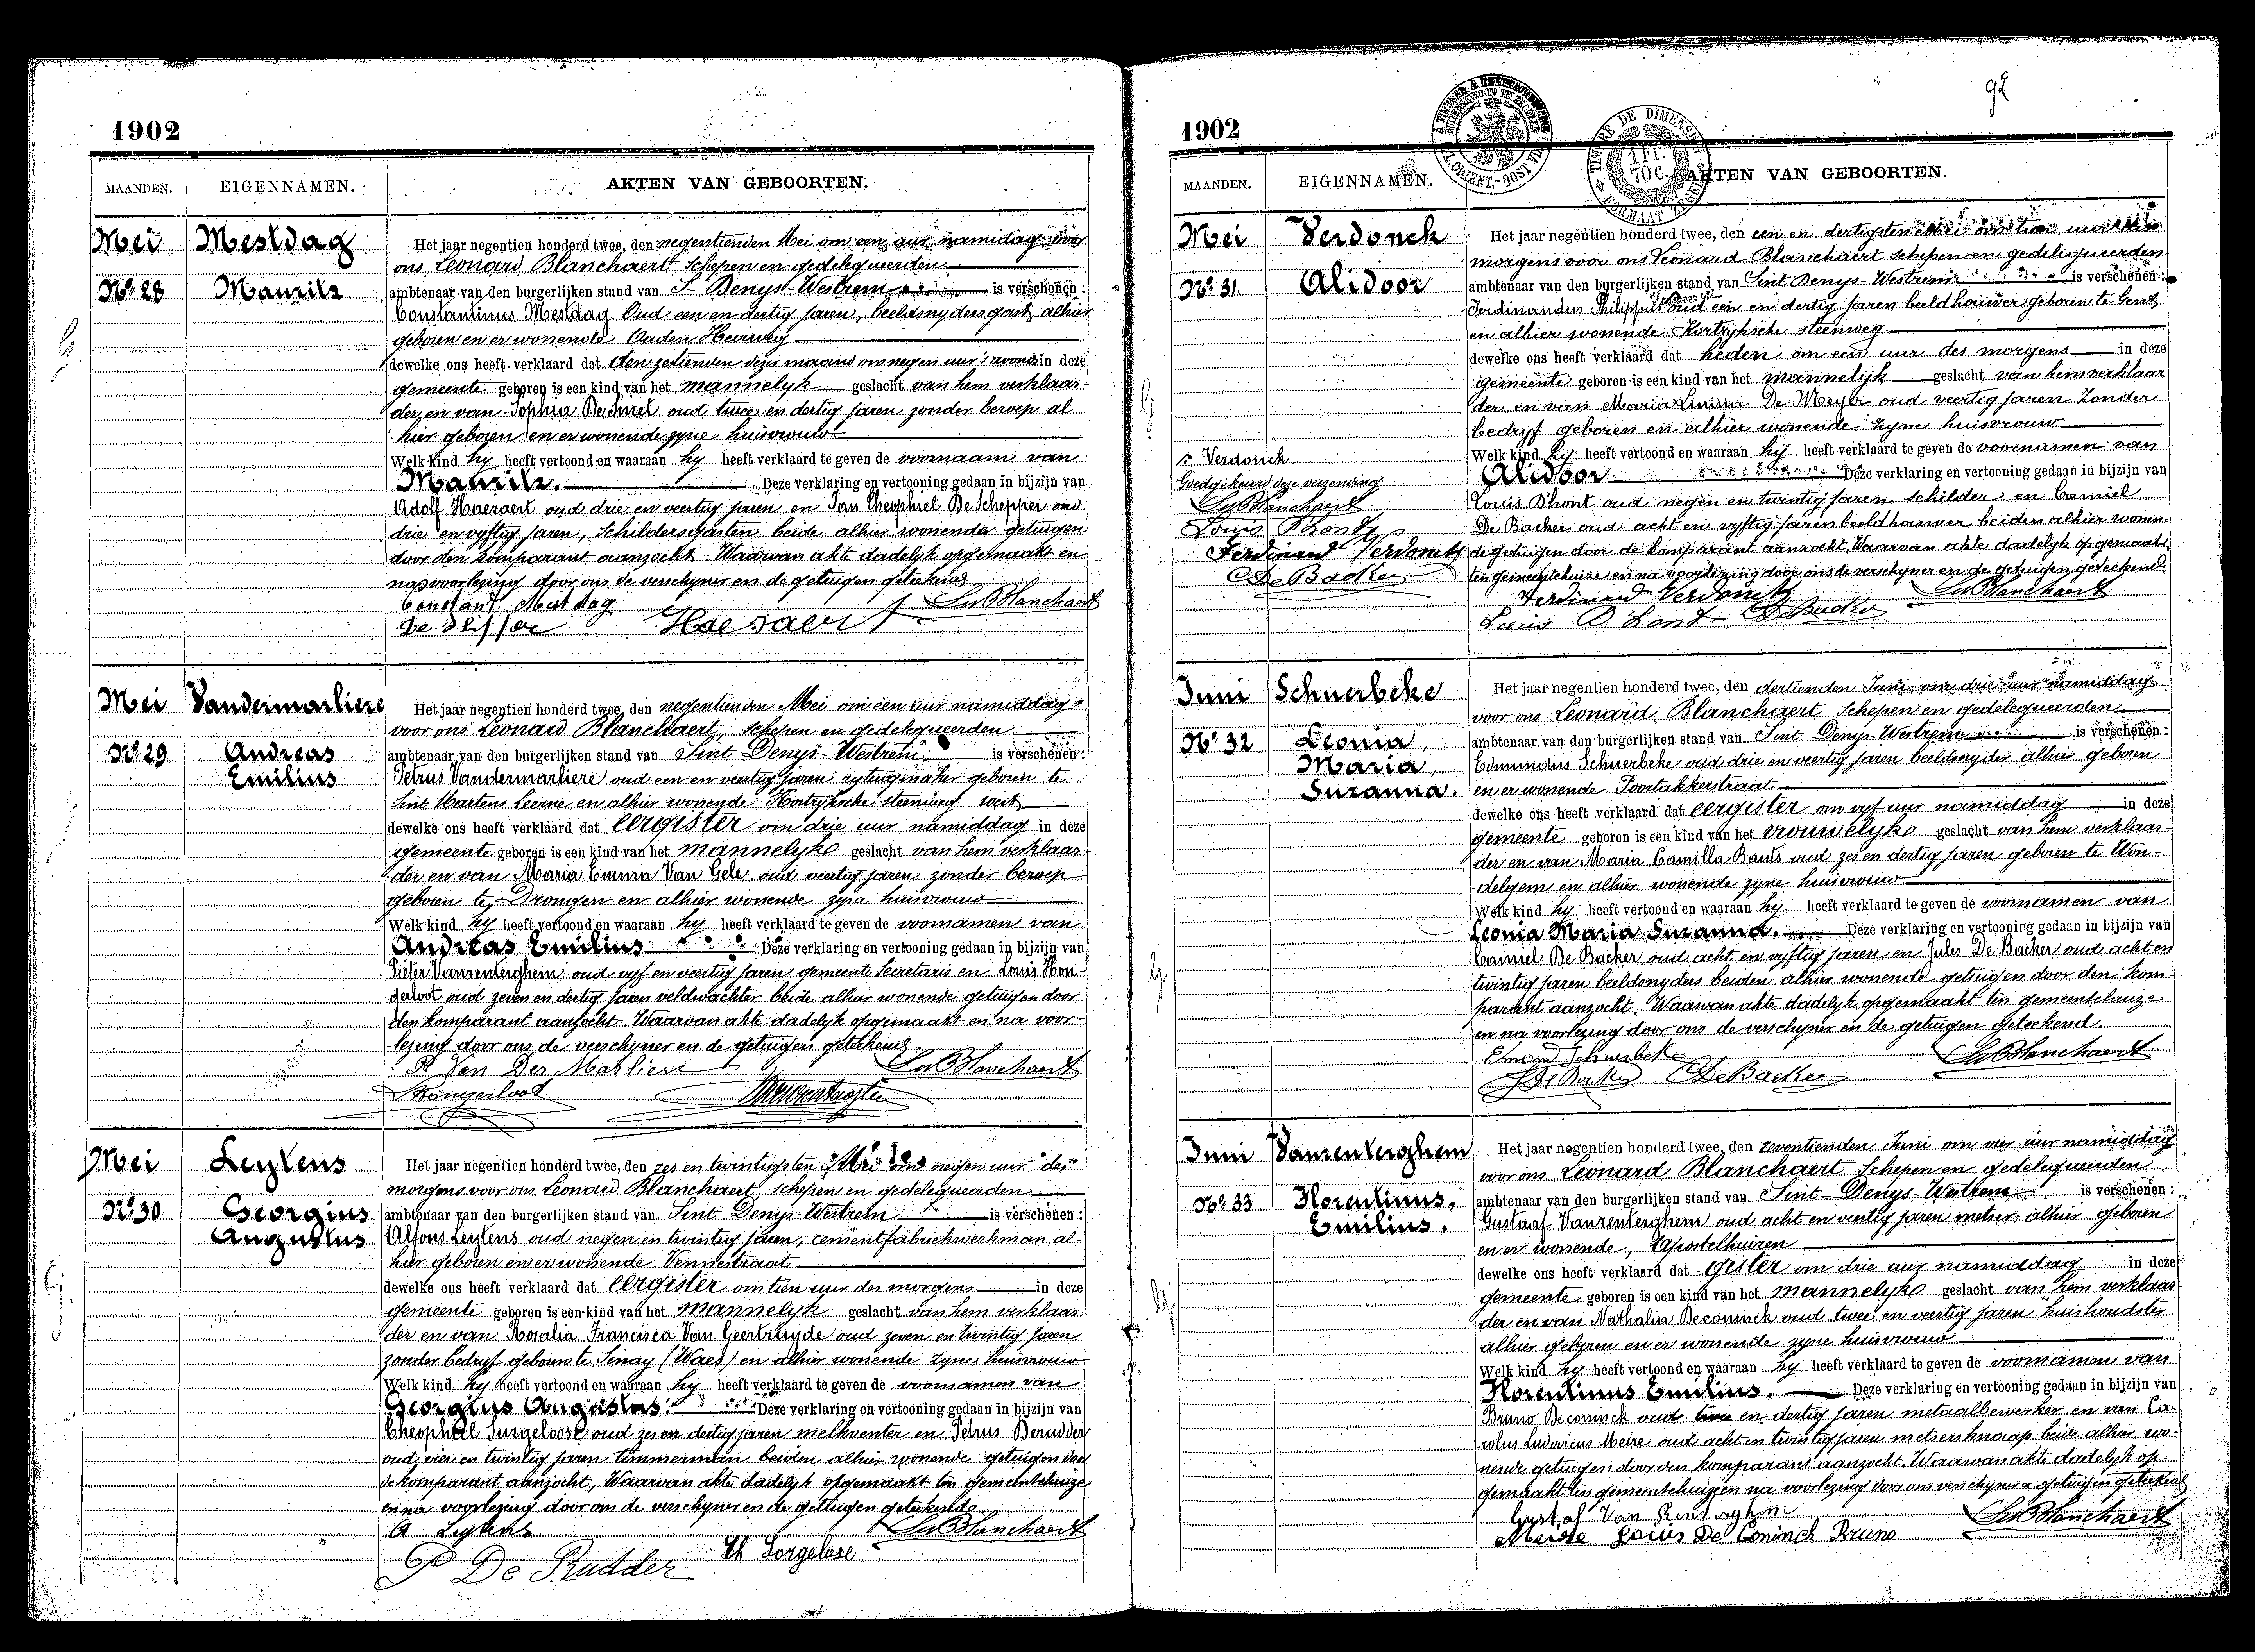 1902
MAANDEN. EIGENNAMEN. AKTEN VAN GEBOORTEN.
Mei Mestdag
No. 28 Maurits
Het jaar negentien honderd twee, den negentienden Mei om een uur namidag voor
ons Leonard Blanchaert Schepen en gedelegueerden
ambtenaar van den burgerlijken stand van St Denys-Westrem is verschenen :
Constantinus Mestdag Oud een en dertig jaren, beeldsnydersgast alhier
geboren en er wonende Ouden Heirweg
dewelke ons heeft verklaard dat den zestienden dezer maand om negen uur 's avonds in deze
gemeente geboren is een kind van het mannelyk geslacht van hem verklaar-
der en van Sophia De Smet oud twee en dertig jaren zonder beroep al-
hier geboren en er wonende zyne huisvrouw
Welk kind hy heeft vertoond en waaraan hy heeft verklaard te geven de voornaam van
Maurits. Deze verklaring en vertooning gedaan in bijzijn van
Adolf Haesaert oud drie en veertig jaren en Jan Theophiel De Schepper oud
drie en vyftig jaren, Schildersgasten beide alhier wonende getuigen
door den komparant aanzocht Waarvan akte dadelyk opgemaakt en
na voorlezing door ons de verschyner en de getuigen geteekend
Constant Mestdag LeBlanchaert
Haesaert
Mei Vandermarliere
No. 29 Andreas
Emilius
Het jaar negentien honderd twee, den negentienden Mei om een uur namiddag
voor ons Leonard Blanchaert, Schepen en gedelegueerden
ambtenaar van den burgerlijken stand van Sint Denys-Westrem is verschenen :
Petrus Vandermarliere oud een en veertig jaren rytuigmaker geboren te
Sint Martens Leerne en alhier wonende Kortryksche steenweg west
dewelke ons heeft verklaard dat eergister om drie uur namiddag in deze
gemeente geboren is een kind van het mannelyke geslacht van hem verklaar-
der en van Maria Emma Van Gele oud veertig jaren zonder beroep
geboren te Drongen en alhier wonende zyne huisvrouw
Welk kind hy heeft vertoond en waaraan hy heeft verklaard te geven de voornamen van
Andreas Emilius Deze verklaring en vertooning gedaan in bijzijn van
Pieter Vanrenterghem oud vyf en veertig jaren gemeente Secretaris en Louis Hon-
gerloot oud zeven en dertig jaren veldwachter beide alhier wonende getuigen door
den komparant aanzocht Waarvan akte dadelyk opgemaakt en na voor-
lezing door ons de verschyner en de getuigen geteekend.
P. Van Der Marliere LeBlanchaert
Hongerloot Vanrenterghem
Mei Leytens
No. 30 Georgius
Augustus
Het jaar negentien honderd twee, den zes en twintigsten Mei om negen uur des
morgens voor ons Leonard Blanchaert, Schepen en gedelegueerden
ambtenaar van den burgerlijken stand van Sint Denys-Westrem is verschenen :
Alfons Leytens oud negen en twintig jaren, cementfabriekwerkman al-
hier geboren en er wonende Vennestraat
dewelke ons heeft verklaard dat eergister om tien uur des morgens in deze
gemeente geboren is een kind van het mannelyk geslacht van hem verklaar-
der en van Rosalia Francisca Van Geertruyde oud zeven en twintig jaren
zonder bedryf geboren te Sinay (Waes) en alhier wonende zyne huisvrouw
Welk kind hy heeft vertoond en waaraan hy heeft verklaard te geven de voornamen van
Georgius Augustus. Deze verklaring en vertooning gedaan in bijzijn van
Theophiel Surgeloose oud zes en dertig jaren melkventer en Petrus Derudder
oud vier en twintig jaren timmerman beiden alhier wonende getuigen door
de komparant aanzocht, Waarvan akte dadelyk opgemaakt ten gemeentehuize
en na voorlezing door ons de verschyner en de getuigen geteekend.
A Leytens LeBlanchaert
P De Rudder Th Sorgelose
92
1902
TIMBRE DE DIMENSION
1 FR. 70 C.
FORMAAT ZEGEL
MAANDEN. EIGENNAMEN. AKTEN VAN GEBOORTEN.
Mei Verdonck
No. 31 Alidoor
Het jaar negentien honderd twee, den een en dertigsten Mei om tien uur des
morgens voor ons Leonard Blanchaert Schepen en gedeligueerden
ambtenaar van den burgerlijken stand van Sint Denys-Westrem is verschenen :
Ferdinandus Philippus oud een en dertig jaren beeldhouwer geboren te Gent
en alhier wonende Kortryksche steenweg
dewelke ons heeft verklaard dat heden om een uur des morgens in deze
gemeente geboren is een kind van het mannelijk geslacht van hem verklaar-
der en van Maria Linina De Meyer oud veertig jaren Zonder
bedryf geboren en alhier wonende zyne huisvrouw
Welk kind hy heeft vertoond en waaraan hy heeft verklaard te geven de voornamen van
Alidoor Deze verklaring en vertooning gedaan in bijzijn van
Louis D'hont oud negen en twintig jaren Schilder en Camiel
De Backer oud acht en vyftig jaren beeldhouwer beiden alhier wonen-
de getuigen door de komparant aanzocht, Waarvan akte dadelyk opgemaakt
ten gemeentehuize en na voorlezing door ons de verschyner en de getuigen geteekend.
Verdonck
Goedgekeurd deze verzending
LeBlanchaert
Louis D'hont
Ferdinand Verdonck
C De Backer
Ferdinand Verdonck LeBlanchaert
Louis D'hont C De Backer
Juni Schuerbeke
No. 32 Leonia,
Maria,
Suzanna.
Het jaar negentien honderd twee, den dertienden Juni om drie uur namiddag
voor ons Leonard Blanchaert Schepen en gedelegueerden
ambtenaar van den burgerlijken stand van Sint Denys-Westrem is verschenen :
Edmundus Schuerbeke oud drie en veertig jaren beeldsnyder alhier geboren
en er wonende Poortakkerstraat
dewelke ons heeft verklaard dat eergister om vyf uur namiddag in deze
gemeente geboren is een kind van het vrouwelyke geslacht van hem verklaar-
der en van Maria Camilla Bauts oud zes en dertig jaren geboren te Won-
delgem en alhier wonende zyne huisvrouw
Welk kind hy heeft vertoond en waaraan hy heeft verklaard te geven de voornamen van
Leonia Maria Suzanna. Deze verklaring en vertooning gedaan in bijzijn van
Camiel De Backer oud acht en vyftig jaren en Jules De Backer oud acht en
twintig jaren beeldsnyders beiden alhier wonende getuigen door den kom-
parant aanzocht. Waarvan akte dadelyk opgemaakt ten gemeentehuize
en na voorlezing door ons de verschyner en de getuigen geteekend.
Edmond Schuerbeke LeBlanchaert
J De Backer C De Backer
Juni Vanrenterghem
No. 33 Florentinus,
Emilius.
Het jaar negentien honderd twee, den zeventienden Juni om vier uur namiddag
voor ons Leonard Blanchaert Schepen en gedelegueerden
ambtenaar van den burgerlijken stand van Sint-Denys-Westrem is verschenen :
Gustaaf Vanrenterghem oud acht en veertig jaren metser alhier geboren
en er wonende, Apostelhuizen
dewelke ons heeft verklaard dat gister om drie uur namiddag in deze
gemeente geboren is een kind van het mannelyke geslacht van hem verklaar-
der en van Nathalia Deconinck oud twee en veertig jaren huishoudster
alhier geboren en er wonende zyne huisvrouw
Welk kind hy heeft vertoond en waaraan hy heeft verklaard te geven de voornamen van
Florentinus Emilius. Deze verklaring en vertooning gedaan in bijzijn van
Bruno Deconinck oud twee en dertig jaren metaalbewerker en van Ca-
rolus Ludovicus Meire oud acht en twintig jaren metsersknaap beide alhier wo-
nende getuigen door den komparant aanzocht. Waarvan akte dadelyk op-
gemaakt ten gemeentehuize en na voorlezing door ons verschyner & getuigen geteekend
Gustaf Van Renterghem LeBlanchaert
Meire Louis De Coninck Bruno